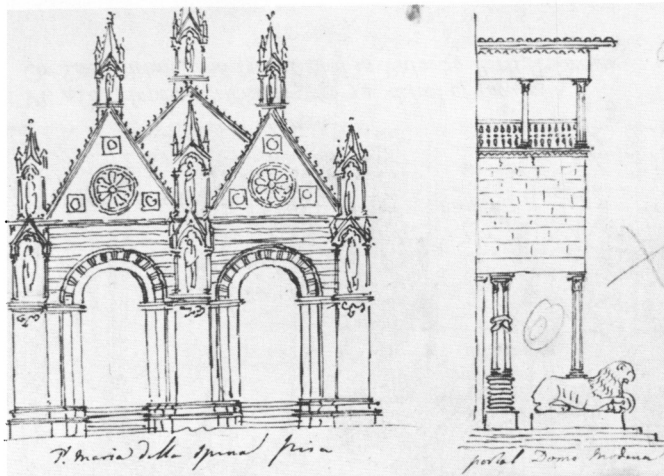 S. maria della Spina pisa
portal Domo Modena